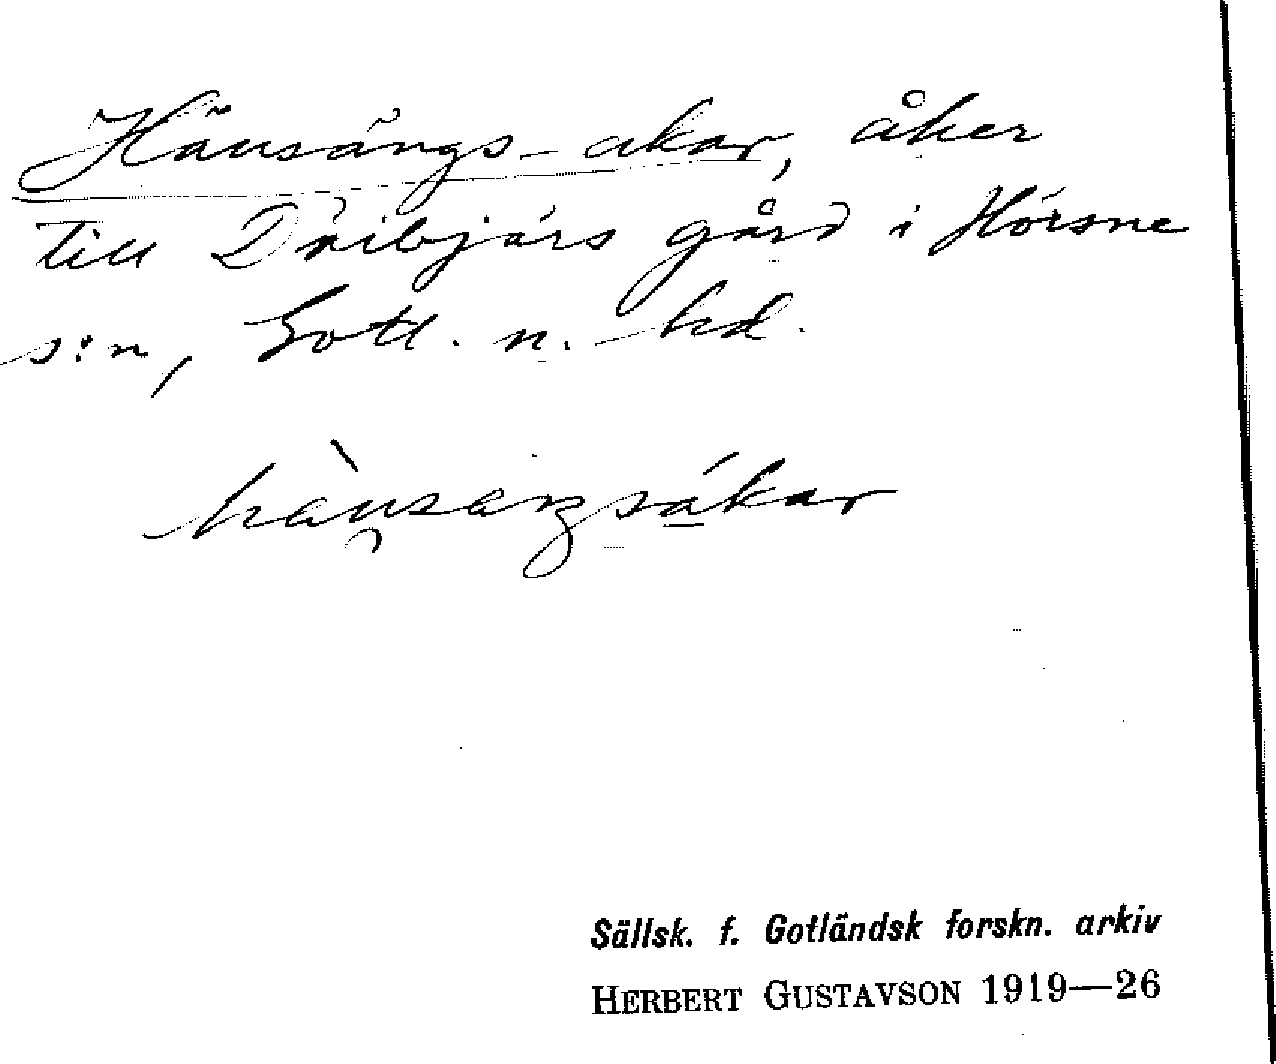 Häusängs-akar, åker
till Dälbjärs gård i Hörsne
s:n, Gotl. n. hd.
hàu̯saŋsákar
Sällsk. f. Gotländsk forskn. arkiv
HERBERT GUSTAVSON 1919—26